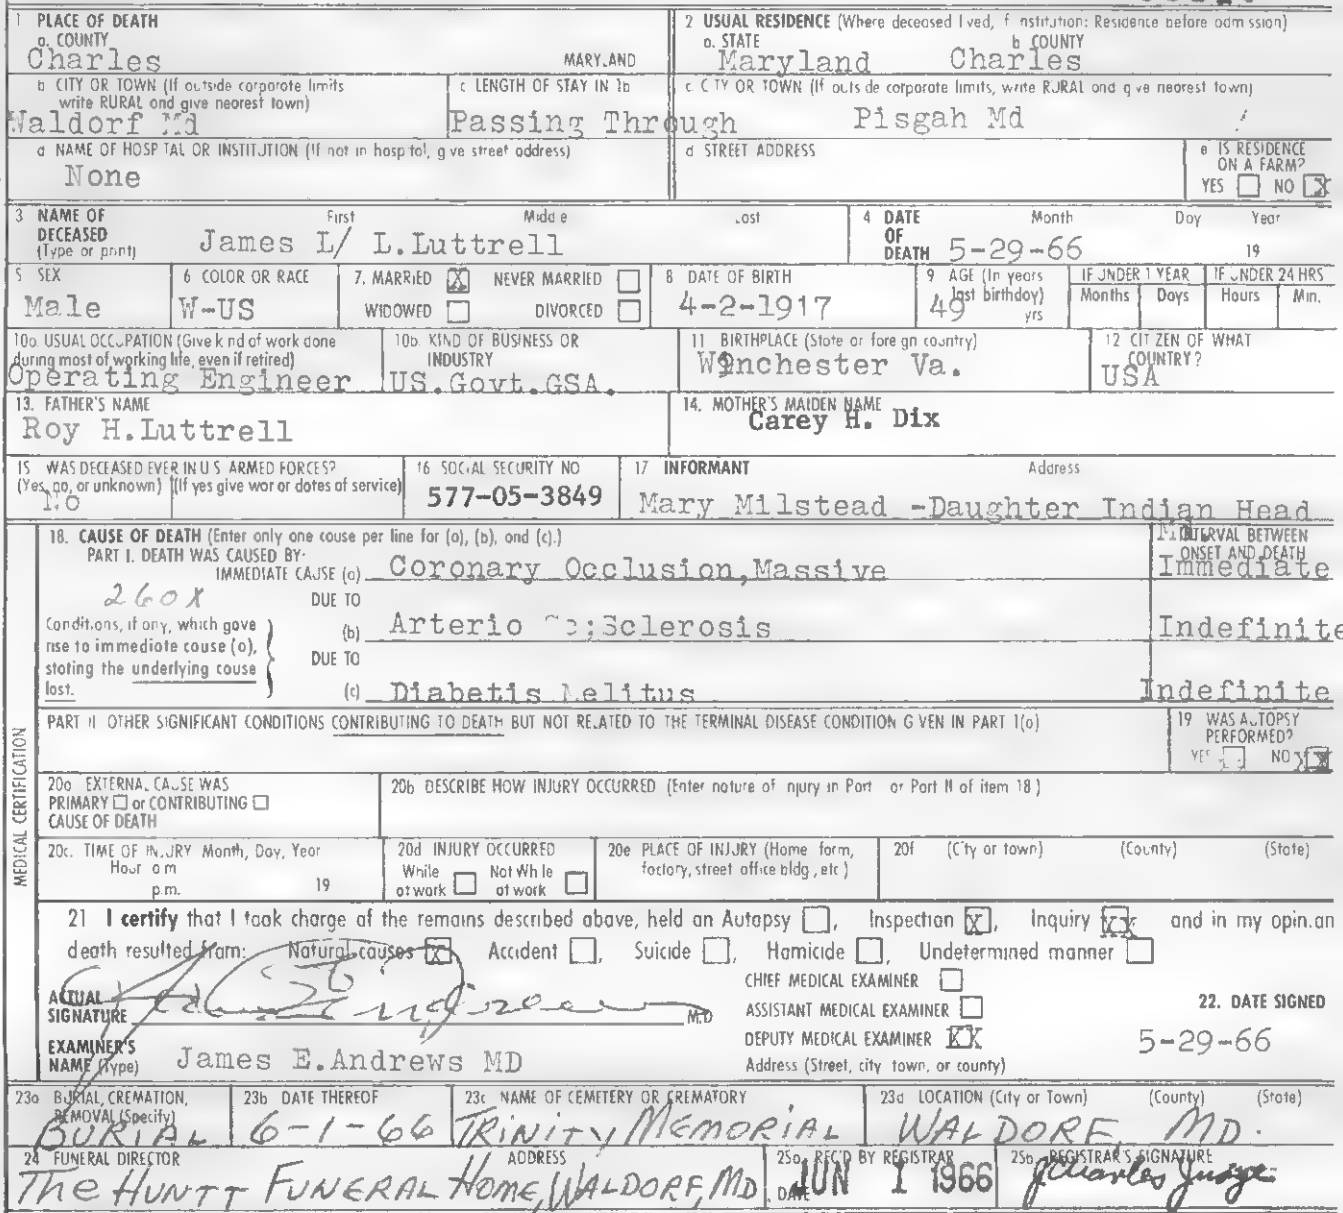 1 PLACE OF DEATH
a. COUNTY
Charles MARYLAND
2 USUAL RESIDENCE (Where deceased lived, if institution: Residence before admission)
a. STATE b COUNTY
Maryland Charles
b CITY OR TOWN (If outside corporate limits write RURAL and give nearest town)
Waldorf Md
c LENGTH OF STAY IN 1b
Passing Through
c CITY OR TOWN (If outside corporate limits, write RURAL and give nearest town)
Pisgah Md
d NAME OF HOSPITAL OR INSTITUTION (If not in hospital, give street address)
None
d STREET ADDRESS
e IS RESIDENCE ON A FARM?
YES NO X
3 NAME OF DECEASED (Type or print) First Middle Last
James L/ L.Luttrell
4 DATE OF DEATH Month Day Year
5-29-66 19
5 SEX
Male
6 COLOR OR RACE
W-US
7. MARRIED X NEVER MARRIED
WIDOWED DIVORCED
8 DATE OF BIRTH
4-2-1917
9 AGE (In years last birthday)
49 yrs
IF UNDER 1 YEAR
Months Days
IF UNDER 24 HRS
Hours Min.
10a. USUAL OCCUPATION (Give kind of work done during most of working life, even if retired)
Operating Engineer
10b. KIND OF BUSINESS OR INDUSTRY
US.Govt.GSA.
11 BIRTHPLACE (State or foreign country)
Winchester Va.
12 CITIZEN OF WHAT COUNTRY?
USA
13. FATHER'S NAME
Roy H.Luttrell
14. MOTHER'S MAIDEN NAME
Carey H. Dix
15 WAS DECEASED EVER IN U S ARMED FORCES?
(Yes, no, or unknown) (If yes give war or dates of service)
No
16 SOCIAL SECURITY NO
577-05-3849
17 INFORMANT Address
Mary Milstead -Daughter Indian Head
Md.
MEDICAL CERTIFICATION
18. CAUSE OF DEATH (Enter only one cause per line for (a), (b), and (c).)
PART I. DEATH WAS CAUSED BY:
INTERVAL BETWEEN ONSET AND DEATH
IMMEDIATE CAUSE (a) Coronary Occlusion,Massive Immediate
260X
DUE TO
Conditions, if any, which gave rise to immediate cause (a), stating the underlying cause last.
(b) Arterio ;Sclerosis Indefinite
DUE TO
(c) Diabetis Melitus Indefinite
PART II OTHER SIGNIFICANT CONDITIONS CONTRIBUTING TO DEATH BUT NOT RELATED TO THE TERMINAL DISEASE CONDITION GIVEN IN PART I(a)
19 WAS AUTOPSY PERFORMED?
YES NO XX
20a EXTERNAL CAUSE WAS
PRIMARY or CONTRIBUTING
CAUSE OF DEATH
20b DESCRIBE HOW INJURY OCCURRED (Enter nature of injury in Part or Part II of item 18)
20c. TIME OF INJURY Month, Day, Year
Hour a m
p.m. 19
20d INJURY OCCURRED
While at work Not While at work
20e PLACE OF INJURY (Home form, factory, street office bldg, etc)
20f (City or town) (County) (State)
21 I certify that I took charge of the remains described above, held an Autopsy , Inspection X, Inquiry XX and in my opinion
death resulted from: Natural causes X Accident , Suicide , Homicide , Undetermined manner
CHIEF MEDICAL EXAMINER
ACTUAL SIGNATURE James E Andrews M.D
ASSISTANT MEDICAL EXAMINER
22. DATE SIGNED
DEPUTY MEDICAL EXAMINER XX 5-29-66
EXAMINER'S NAME (Type) James E.Andrews MD
Address (Street, city town, or county)
23a BURIAL, CREMATION, REMOVAL (Specify)
BURIAL
23b DATE THEREOF
6-1-66
23c NAME OF CEMETERY OR CREMATORY
TRINITY MEMORIAL
23d LOCATION (City or Town) (County) (State)
WALDORF MD.
24 FUNERAL DIRECTOR ADDRESS
The HUNTT FUNERAL HOME, WALDORF, MD.
25a REC'D BY REGISTRAR
DATE JUN 1 1966
25b REGISTRAR'S SIGNATURE
J Charles Judge